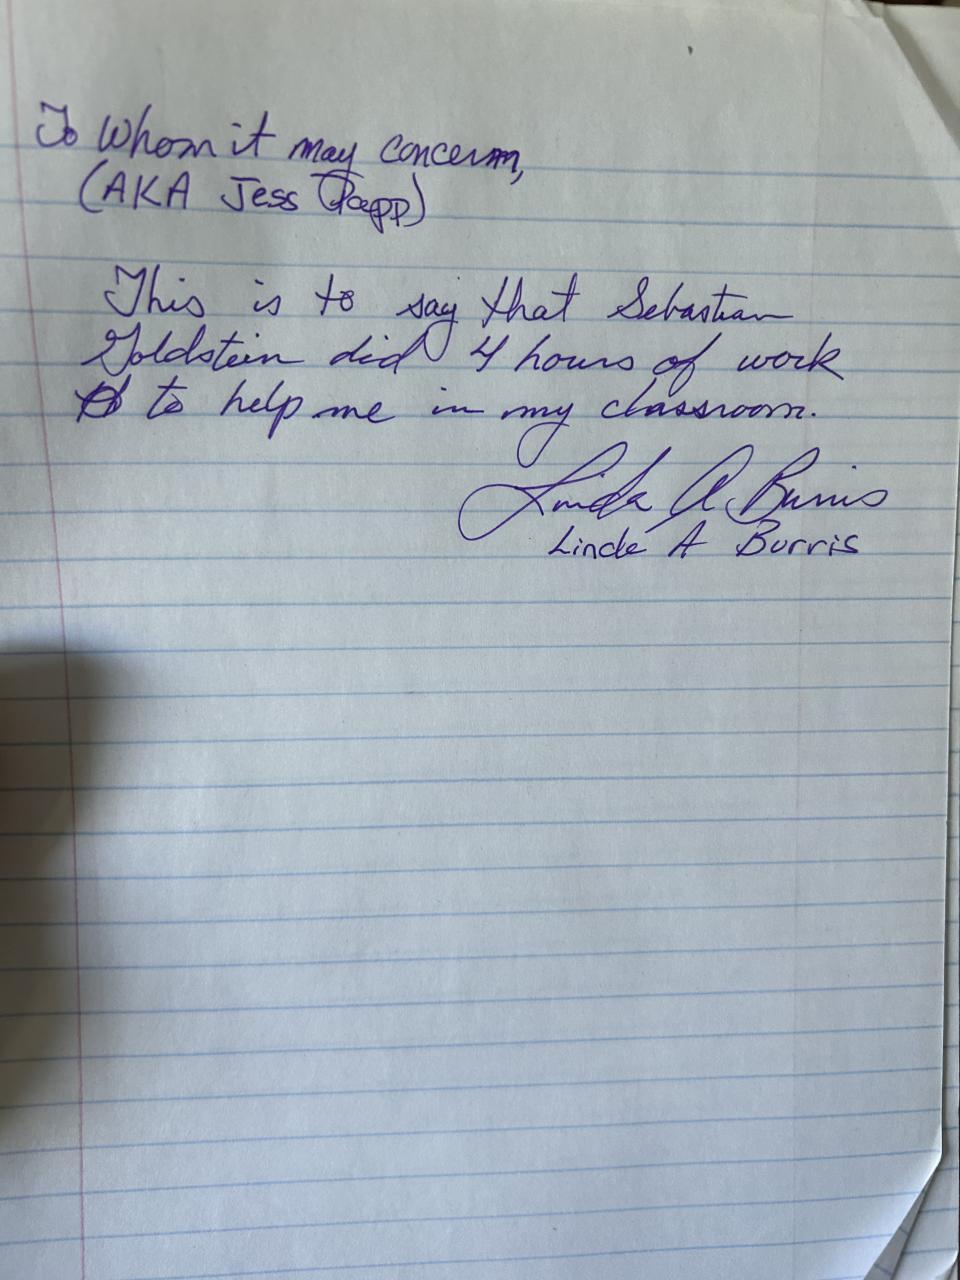 To Whom it may concern,
(AKA Jess Papp)
This is to say that Sebastian
Goldstein did 4 hours of work
to help me in my classroom.
Linda A Burris
Linda A Burris